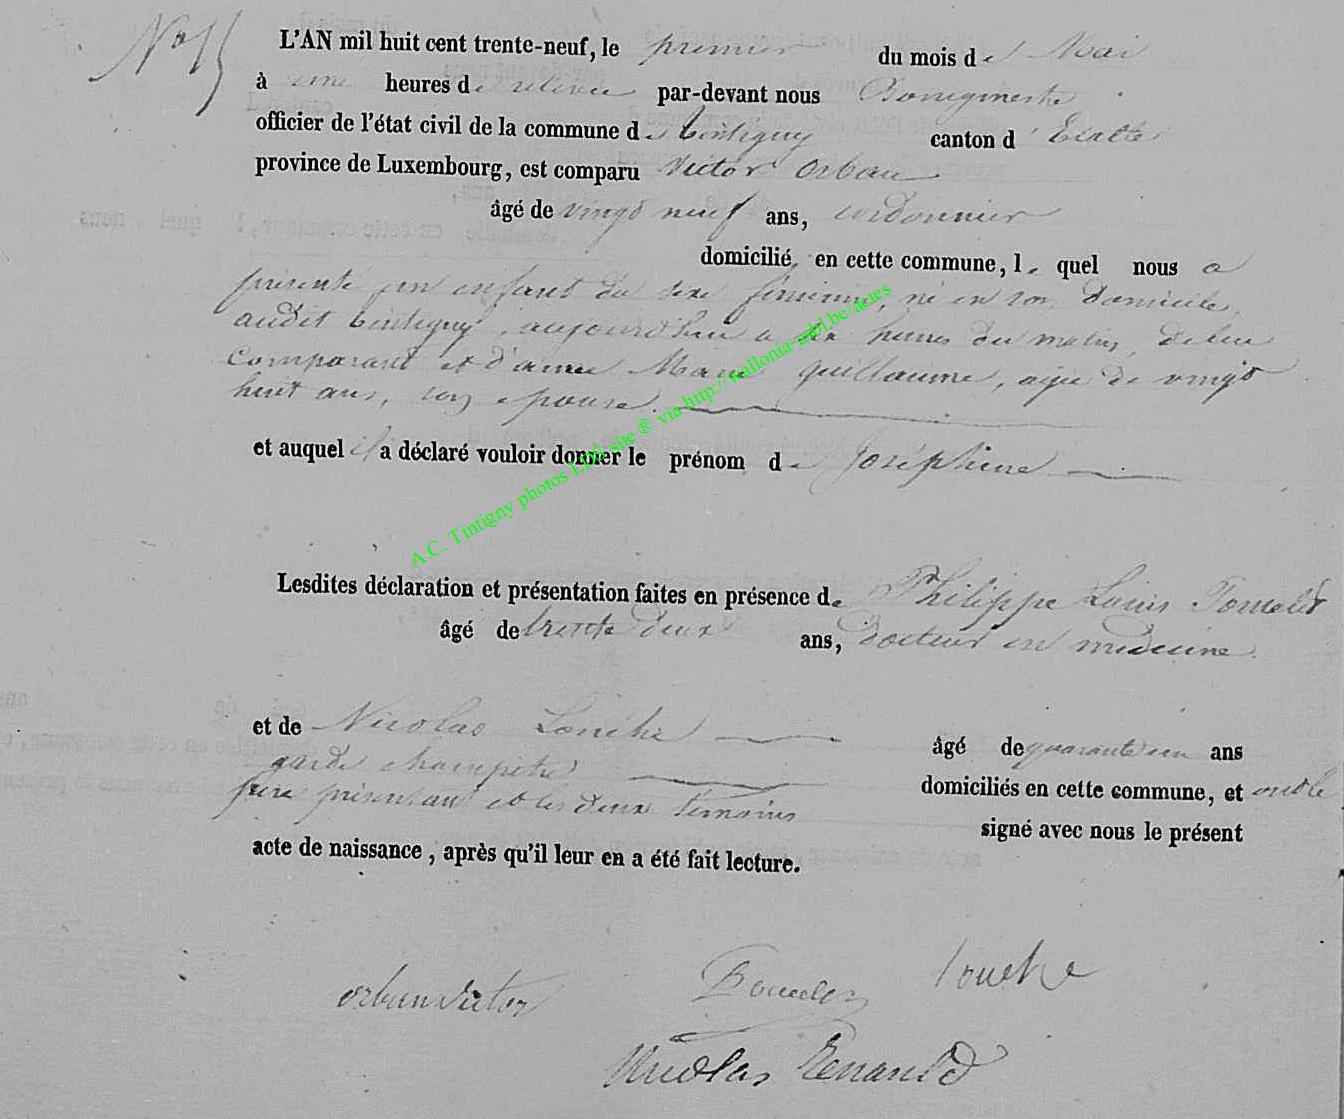 L'AN mil huit cent trente-neuf, le premier du mois de Mai
à une heures de relevée par-devant nous Bourgmestre
officier de l'état civil de la commune de tintigny canton d'Etalle
province de Luxembourg, est comparu Victor Orban
âgé de vingt neuf ans, cordonnier
domicilié en cette commune, le quel nous a
présenté un enfant du sexe féminin, né en son domicile
audit tintigny, aujourd'hui a heures du matin, de lui
comparant et d'anne Marie guillaume, agée de vingt
huit ans, son epouse.
et auquel il a déclaré vouloir donner le prénom de Joséphine
Lesdites déclaration et présentation faites en présence de Philippe Louis
âgé de trente deux ans, docteur en médecine
et de Nicolas Louche âgé de quarante un ans
garde champetre domiciliés en cette commune, et ont le
pere présentant et les deux témoins signé avec nous le présent
acte de naissance, après qu'il leur en a été fait lecture.
orban victor louche
Nicolas Renauld
A.C. Tintigny photos LDS site ® via http://wallonia-asbl.be/actes